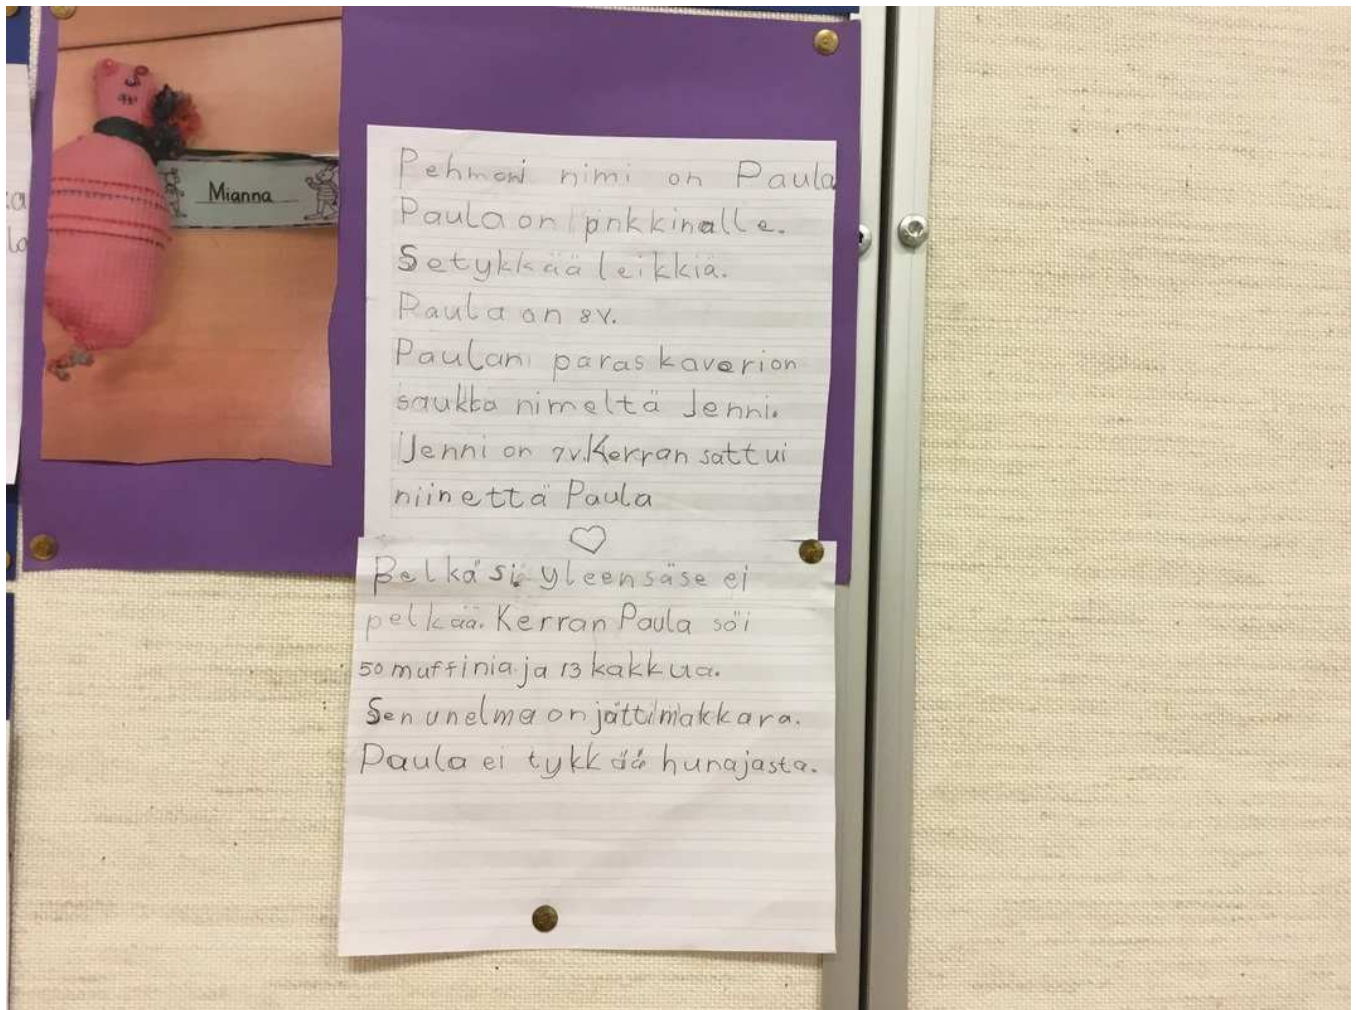 Mianna
Pehmoni nimi on Paula
Paula on pinkkinalle.
Setykkää leikkiä.
Paula on 8v.
Paulani paras kaverion
saukko nimeltä Jenni.
Jenni on 7v. Kerran sattui
niinettä Paula
Pelkäsi yleensäse ei
pelkää. Kerran Paula söi
50 muffinia ja 13 kakkua.
Sen unelma on jättimakkara.
Paula ei tykkää hunajasta.